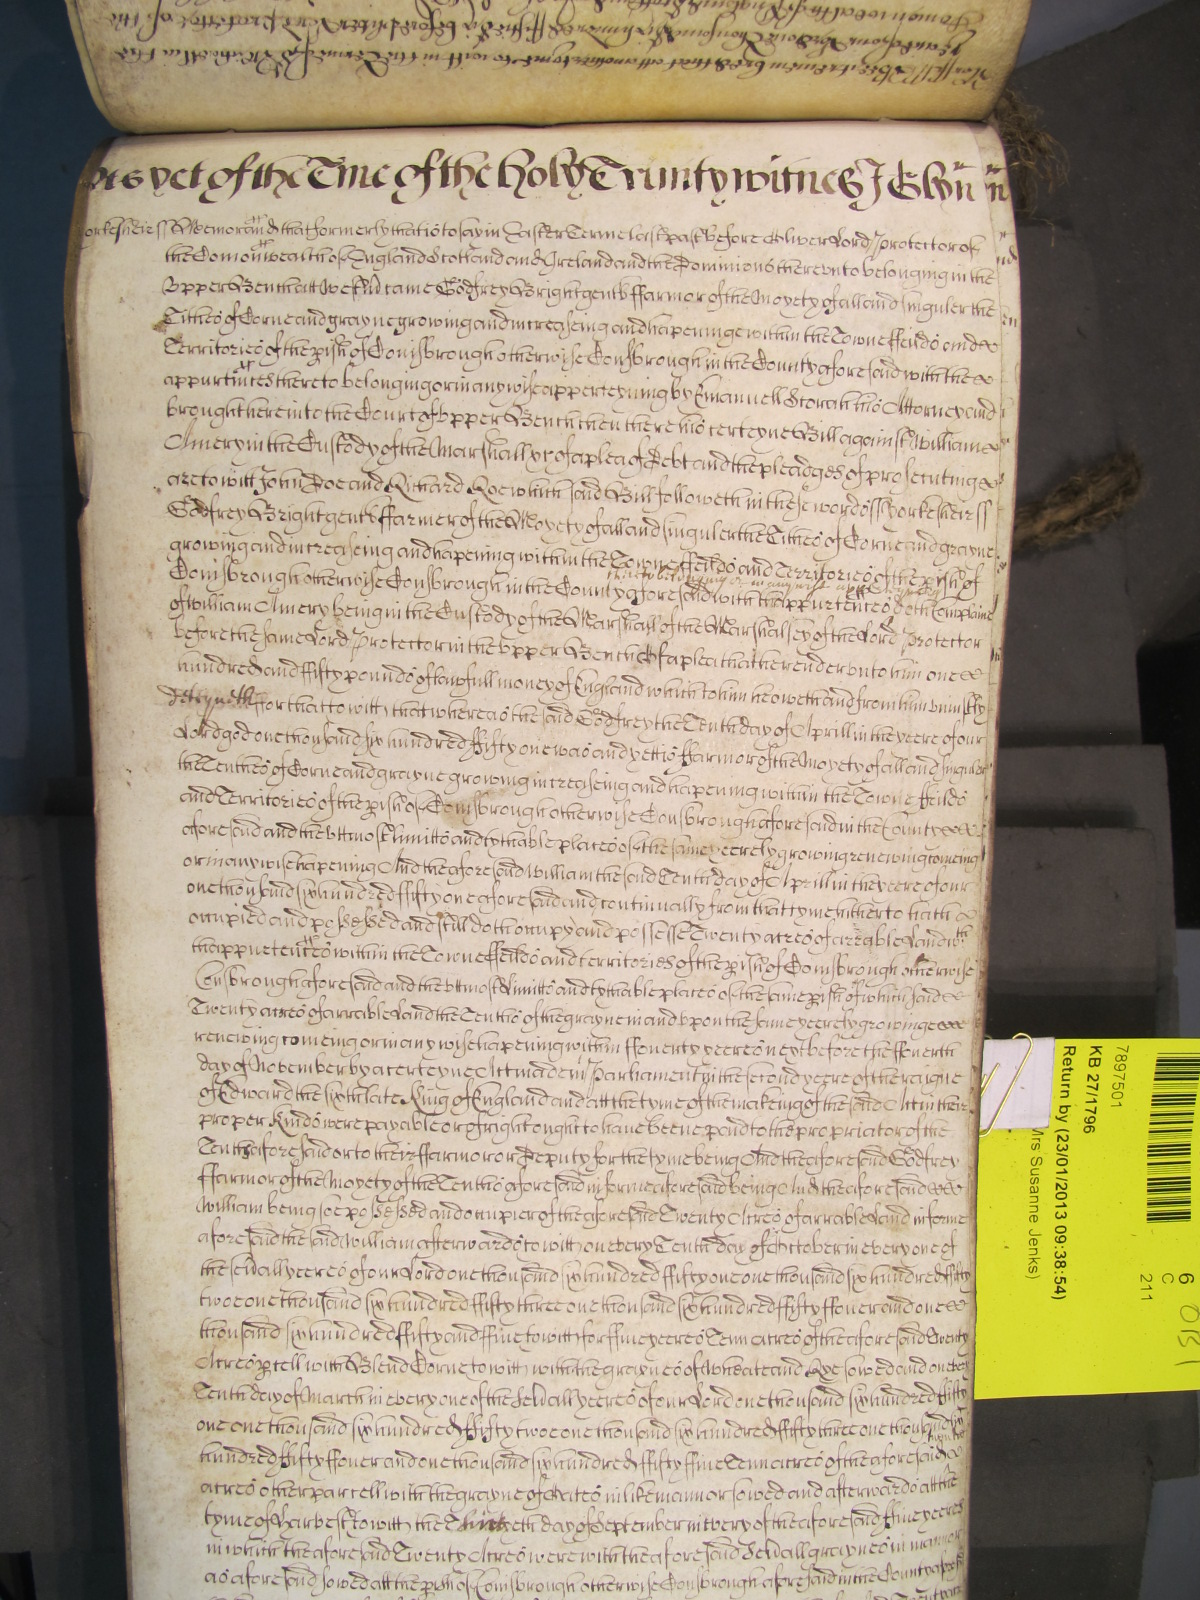 As yet of the Tme of the holy Trinity witnes J Glyn
orkesheir ss Memorand that formerly that is to say in Easter Terme last past before Oliver Lord Protector of
the Comonwealth of England Scotland and Ireland and the Dominions thereunto belonging in the
Upper Bench att Westm came Godfrey Bright gent ffarmor of the Moyety of all and singuler the
Tithes of Corne and grayne growing and increaseing and hapeninge within the Towne ffeilds and
Territories of the pish of Conisbrough otherwise Consbrough in the County aforesaid with the
appurtintes thereto belonging or in any wise apperteyning by Emanuell Storah his Attorney and
brought here into the Court of Upper Bench then there his certeyne Bill against William
Amery in the Custody of the Marshall &c of a plea of Debt and the pleadges of prosecuting
are to witt John Doe and Richard Roe which said Bill followeth in these words ss Yorkesheir ss
Godfrey Bright gent ffarmer of the Moyety of all and singuler the Tithes of Corne and grayne
growing and increaseing and hapening within the Towne ffeilds and Territories of the pish of
thereto belonging or in any wise
Conisbrough otherwise Consbrough in the County aforesaid with thappurtences doth Complaine
of William Amery being in the Custody of the Marshall of the Marshalsey of the Lord Protector
before the same Lord Protector in the Upper Bench Of a plea that he render unto him one
hundred and ffifty pounds of lawfull money of England which to him he oweth and from him uniustly
deteyneth ffor that to witt that whereas the said Godfrey the Tenth day of Aprill in the yeere of our
Lord god one thousand six hundred ffifty one was and yett is ffarmor of the Moyety of all and singuler
the Tenthes of Corne and grayne growing increaseing and hapening within the Towne ffeilds
and Territories of the pish of Conisbrough otherwise Consbrough aforesaid in the County
aforesaid and the uttmost limitts and tythable places of the same yeerely growing renewing comeing
or in any wise hapening And the aforesaid William the said Tenth day of Aprill in the yeere of our
one thousand six hundred ffifty one aforesaid and continually from that tyme hitherto hath
occupied and possessed and still doth occupy and possesse Twenty acres of areable Land with
thappurtences within the Towne ffeilds and territories of the pish of Conisbrough otherwise
Consbrough aforesaid and the uttmost limitts and tythable places of the same pish of which said
Twenty acres of arrable Land the Tenths of the grayne in and upon the same yeerely growinge
renewing comeing or in any wise hapening within ffourty yeeres next before the ffourth
day of November by a certeyne Act made in Parliament in the second yeere of the raigne
of Edward the sixth late King of England and att the tyme of the makeing of the said Act in their
proper kinds were payable or of right ought to have beene paid to the propriator of the
Tenths aforesaid or to their ffarmor or deputy for the tyme being And the aforesaid Godfrey
ffarmor of the Moyety of the Tenths aforesaid in forme aforesaid being And the aforesaid
William being soe possessed and occupier of the aforesaid Twenty Acres of arrable Land in forme
aforesaid the said William afterwards to witt on every Tenth day of October in every one of
the severall yeeres of our Lord one thousand six hundred ffifty one one thousand six hundred ffifty
twoe one thousand six hundred ffifty three one thousand six hundred ffifty ffouer and one
thousand six hundred ffifty and ffiue to witt for ffiue yeeres Tenn acres of the aforesaid Twenty
Acres pcell with Blend Corne to witt with the graynes of Wheate and Rye sowed and on every
Tenth day of March in every one of the severall yeeres of our Lord one thousand six hundred ffifty
one one thousand six hundred ffifty twoe one thousand six hundred ffifty three one thousand six
hundred ffifty ffouer and one thousand six hundred ffifty ffiue Tenn acres of the aforesaid
acres other parcell with the grayne of Oates in like mannor sowed and afterwards att the
tyme of Harvest to witt the day of September in every of the aforesaid ffiue yeeres
in which the aforesaid Twenty Acres were with the aforesaid severall graynes in mannor
as aforesaid sowed att the pish of Conisbrough otherwise Consbrough aforesaid in the County aforesaid
7897501
KB 27/1796
Return by (23/01/2013 09:38:54)
Mrs Susanne Jenks)
6
C
211